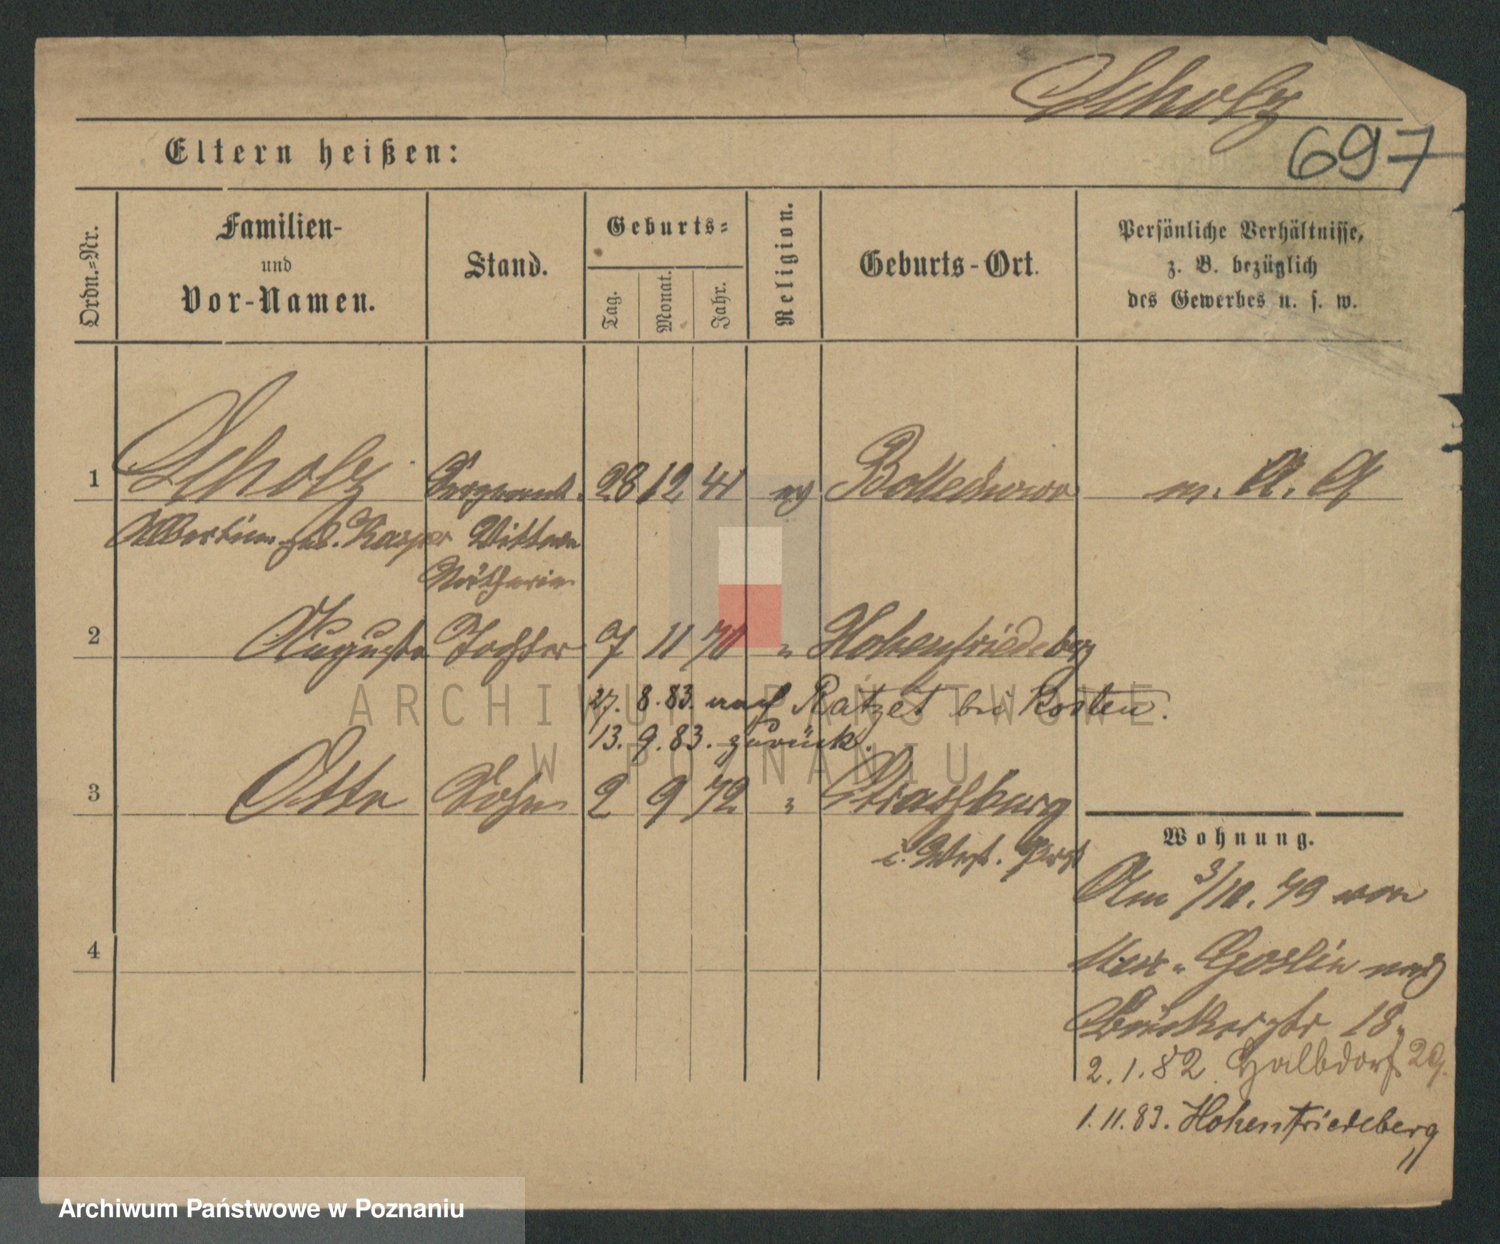 Scholz
697
Eltern heißen:
Ordn.-Nr.
Familien-
und
Vor-Namen.
Stand.
Geburts-
Tag.
Monat.
Jahr.
Religion.
Geburts-Ort.
Persönliche Verhältnisse,
z. B. bezüglich
des Gewerbes u. s. w.
1 Scholz 28 12 41 Bollechowo
geb. Kasper Wittwe
Näherin
2 Auguste Tochter 7 11 70 " Hohenfriedeberg
27. 8. 83. nach Ratzet bei Kosten.
13. 9. 83. zurück.
3 Otto Sohn 2 9 72 " Strasburg
i. West. Prß
Wohnung.
Am 3/10. 79 von
Mur. Goslin nach
Bäckerstr. 18.
4
2. 1. 82. Halbdorfs 29.
1. 11. 83. Hohenfriedeberg
ARCHIWUM PAŃSTWOWE
W POZNANIU
Archiwum Państwowe w Poznaniu